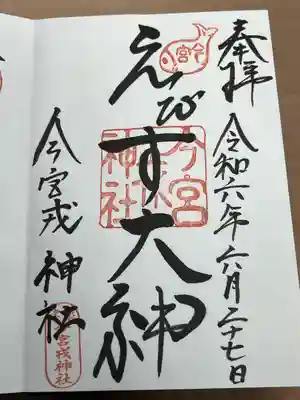 奉拝
令和六年六月二十七日
えびす大神
今宮
今宮戎神社
今宮戎神社
今宮戎神社